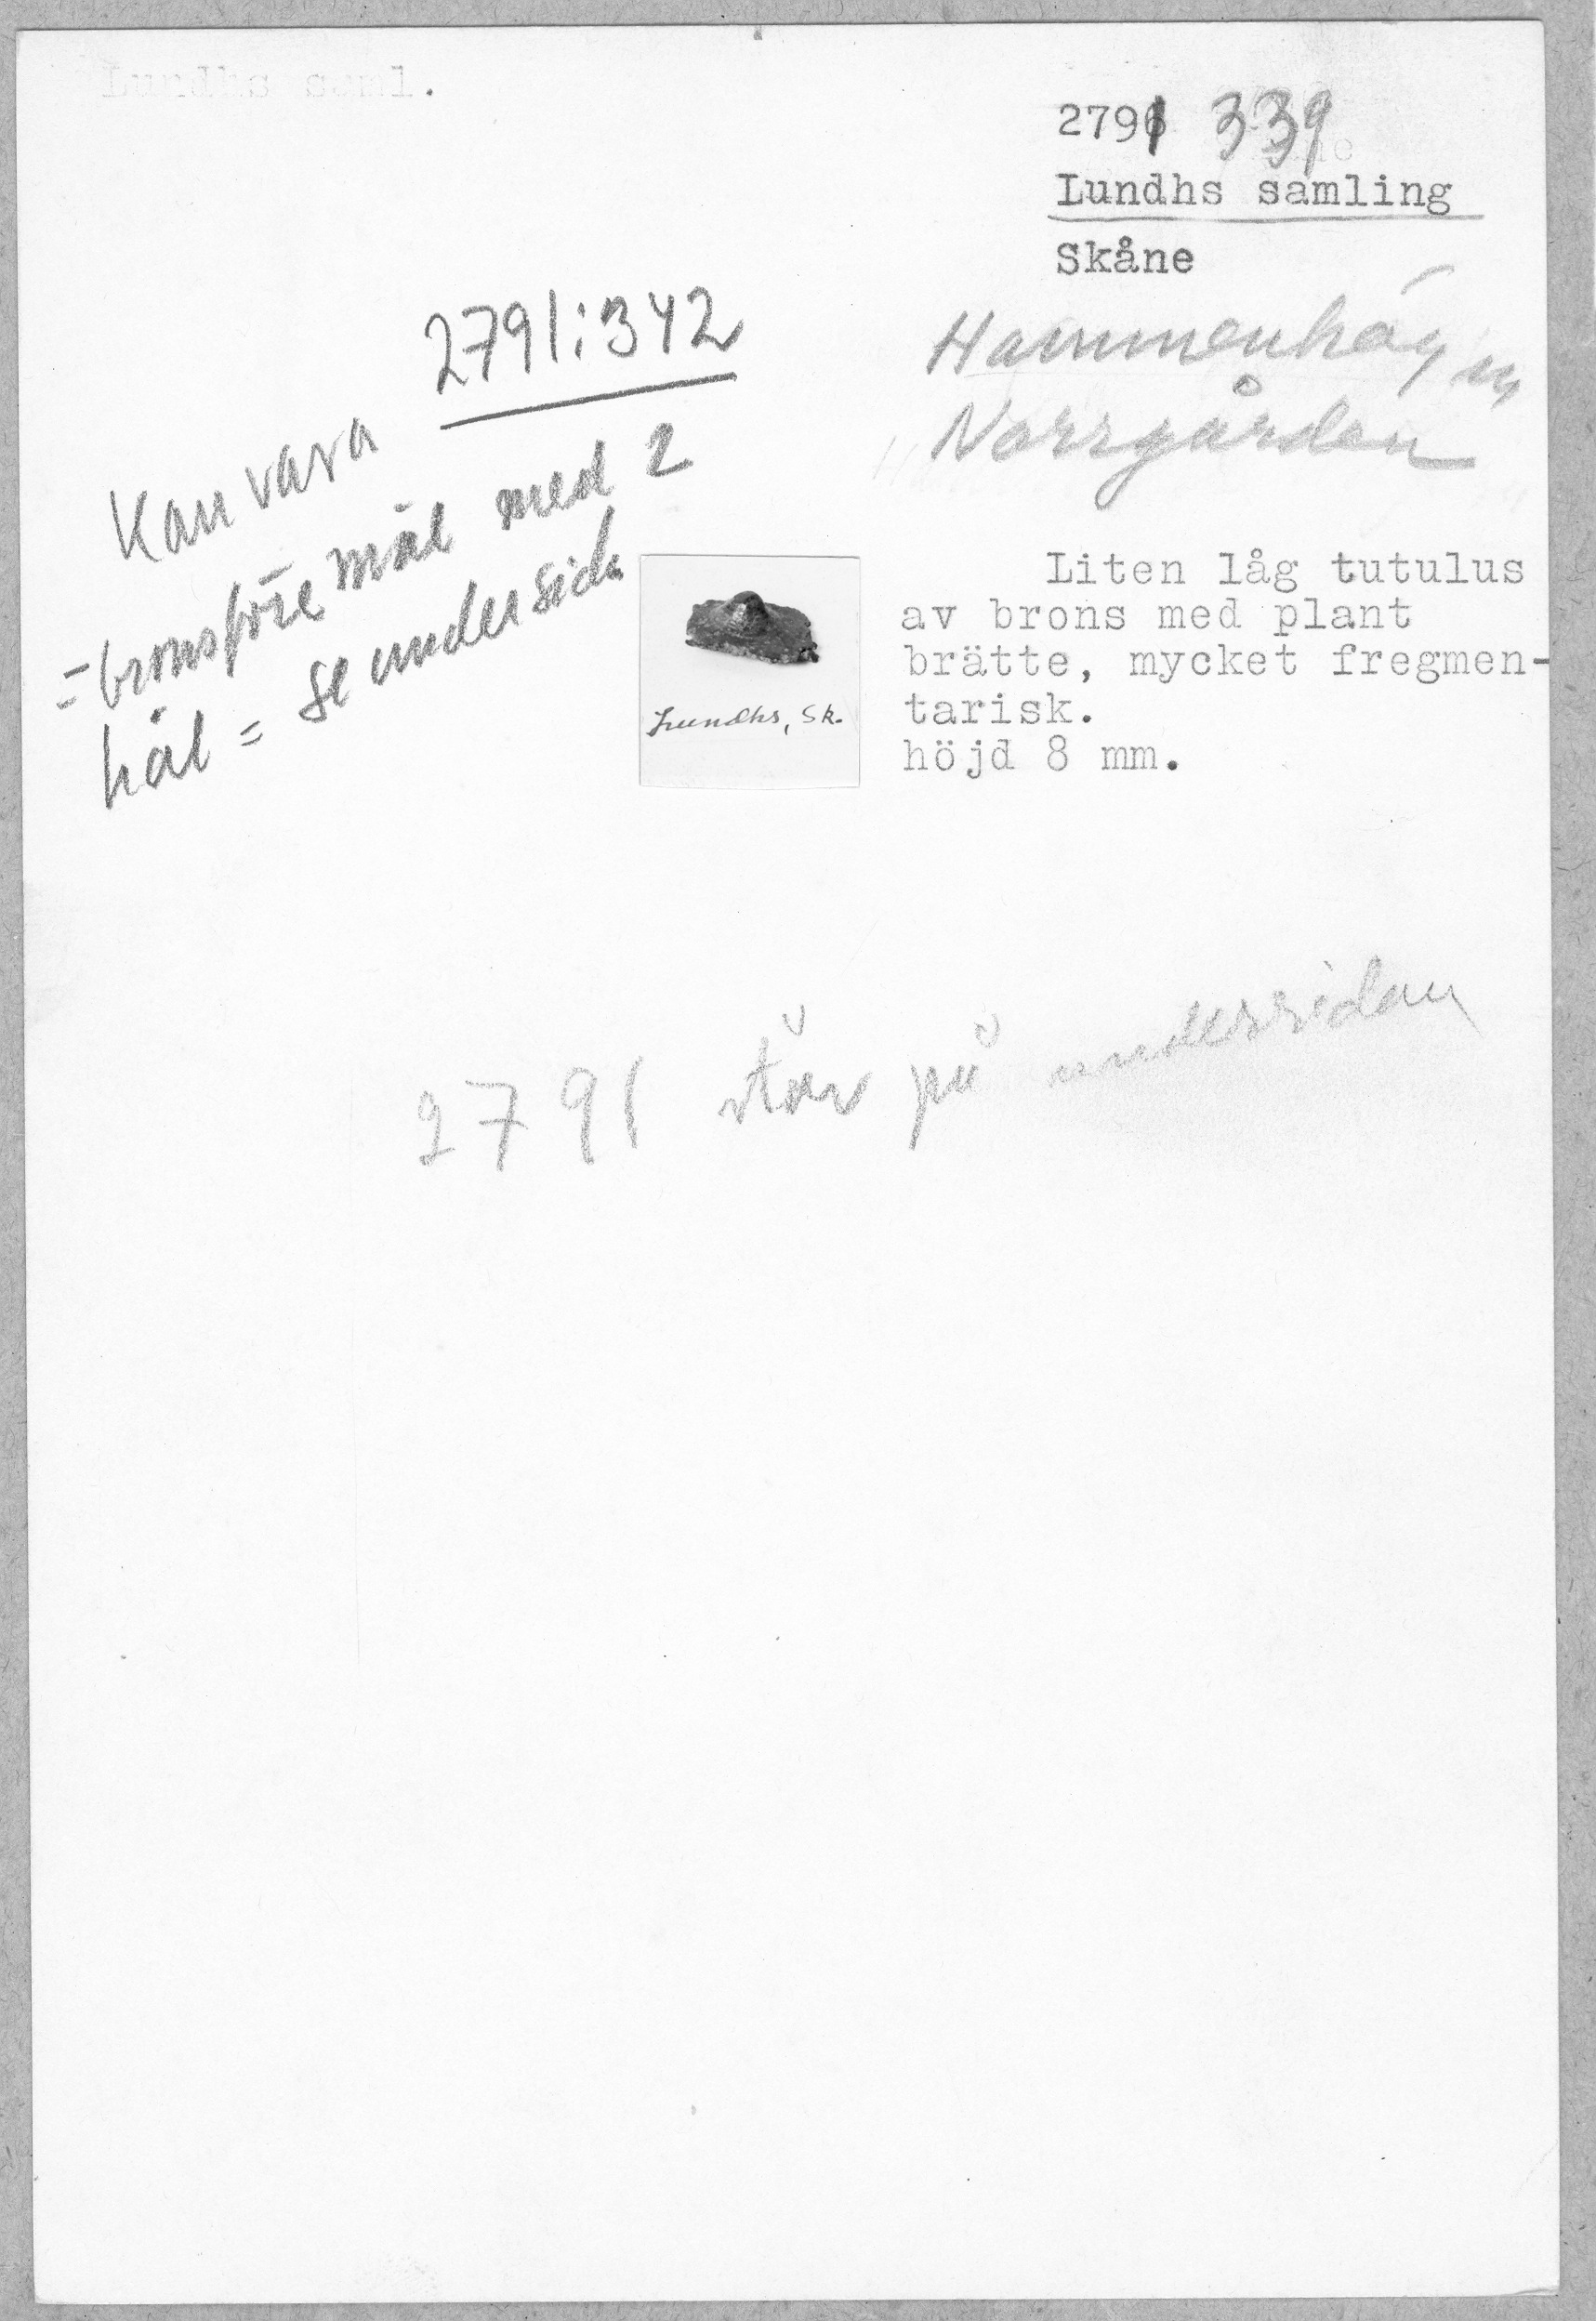 Lundhs saml.
2791 339
Lundhs samling
Skåne
Hammenhög
Norrgården
2791:342
Kan vara
= bronsföremål med 2
hål = se undersida
Lundhs, Sk.
Liten låg tutulus
av brons med plant
brätte, mycket fregmen-
tarisk.
höjd 8 mm.
2791 står på undersidan